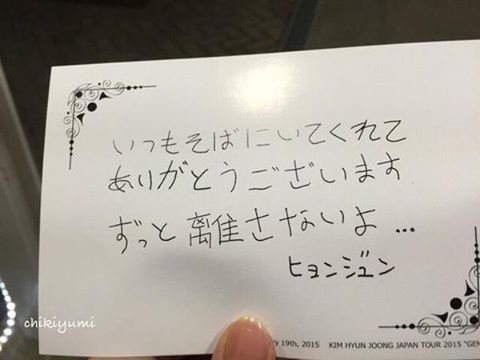 いつもそばにいてくれて
ありがとうございます
ずっと離さないよ...
ヒョンジュン
chikiyumi
19th, 2015 KIM HYUN JOONG JAPAN TOUR 2015 "GEN